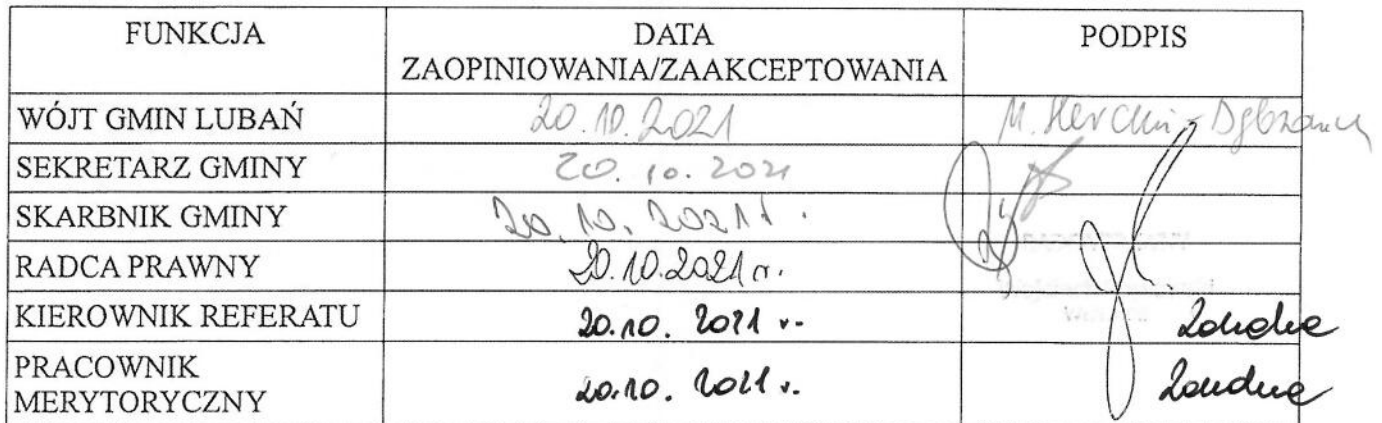 FUNKCJA DATA PODPIS
ZAOPINIOWANIA/ZAAKCEPTOWANIA
WÓJT GMIN LUBAŃ 20.10.2021 M.
SEKRETARZ GMINY 20.10.2021
SKARBNIK GMINY 20.10.2021 r.
RADCA PRAWNY 20.10.2021 r.
KIEROWNIK REFERATU 20.10.2021 r.
PRACOWNIK
MERYTORYCZNY 20.10.2021 r.